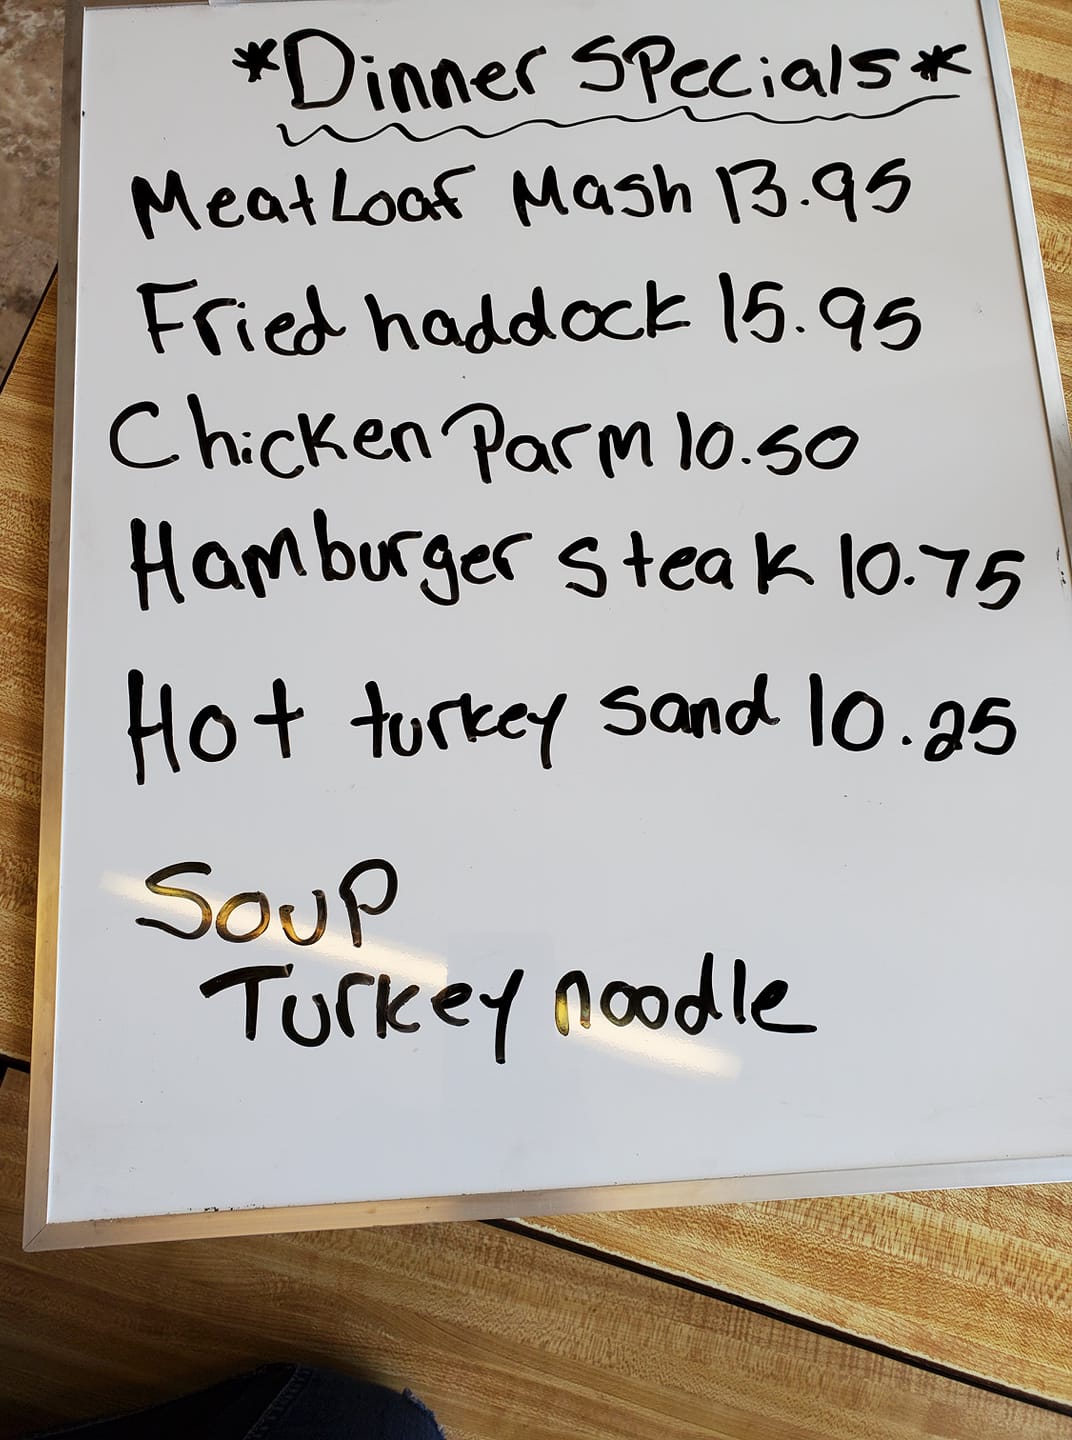 *Dinner Specials*
Meat Loaf Mash 13.95
Fried haddock 15.95
Chicken Parm 10.50
Hamburger steak 10.75
Hot turkey sand 10.25
Soup
Turkey noodle